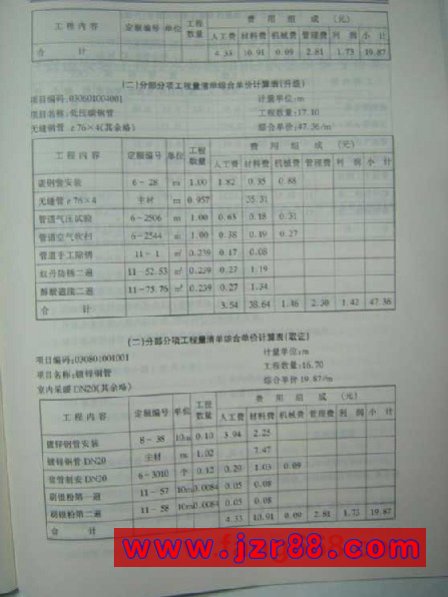 工程内容 定额编号 单位 工程数量 费用组成(元)
人工费 材料费 机械费 管理费 利润 小计
合计 4.33 10.91 0.09 2.81 1.73 19.87
(二)分部分项工程量清单综合单价计算表(升级)
项目编码:030601004001 计量单位:m
项目名称:低压碳钢管 工程数量:17.10
无缝钢管φ76×4(其余略) 综合单价:47.36/m
工程内容 定额编号 单位 工程数量 费用组成(元)
人工费 材料费 机械费 管理费 利润 小计
碳钢管安装 6-28 m 1.00 1.82 0.35 0.88
无缝管φ76×4 主材 m 0.957 35.31
管道气压试验 6-2506 m 1.00 0.63 0.18 0.31
管道空气吹扫 6-2544 m 1.00 0.38 0.19 0.27
管道手工除锈 11-1 m² 0.239 0.17 0.08
红丹防锈二遍 11-52.53 m² 0.239 0.27 1.19
醇酸磁漆二遍 11-75.76 m² 0.239 0.27 1.34
3.54 38.64 1.46 2.30 1.42 47.36
(二)分部分项工程量清单综合单价计算表(取证)
项目编码:030801001001 计量单位:m
项目名称:镀锌钢管 工程数量:16.70
室内采暖DN20(其余略) 综合单价19.87/m
工程内容 定额编号 单位 工程数量 费用组成(元)
人工费 材料费 机械费 管理费 利润 小计
镀锌钢管安装 8-38 10m 0.10 3.94 2.25
镀锌钢管DN20 主材 m 1.02 7.47
套管制安DN20 6-3010 个 0.12 0.29 1.03 0.09
刷银粉第一遍 11-57 10m 0.0084 0.05 0.08
刷银粉第二遍 11-58 10m 0.0084 0.05 0.08
合计 4.33 10.91 0.09 2.81 1.73 19.87
www.jzr88.com